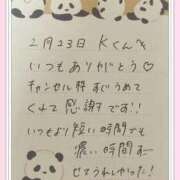 2月23日 Kくんへ
いつもありがとう♡
キャンセル枠すぐうめて
くれて感謝です!!
いつもより短い時間でも
濃い時間すごー
せてうれしかった!